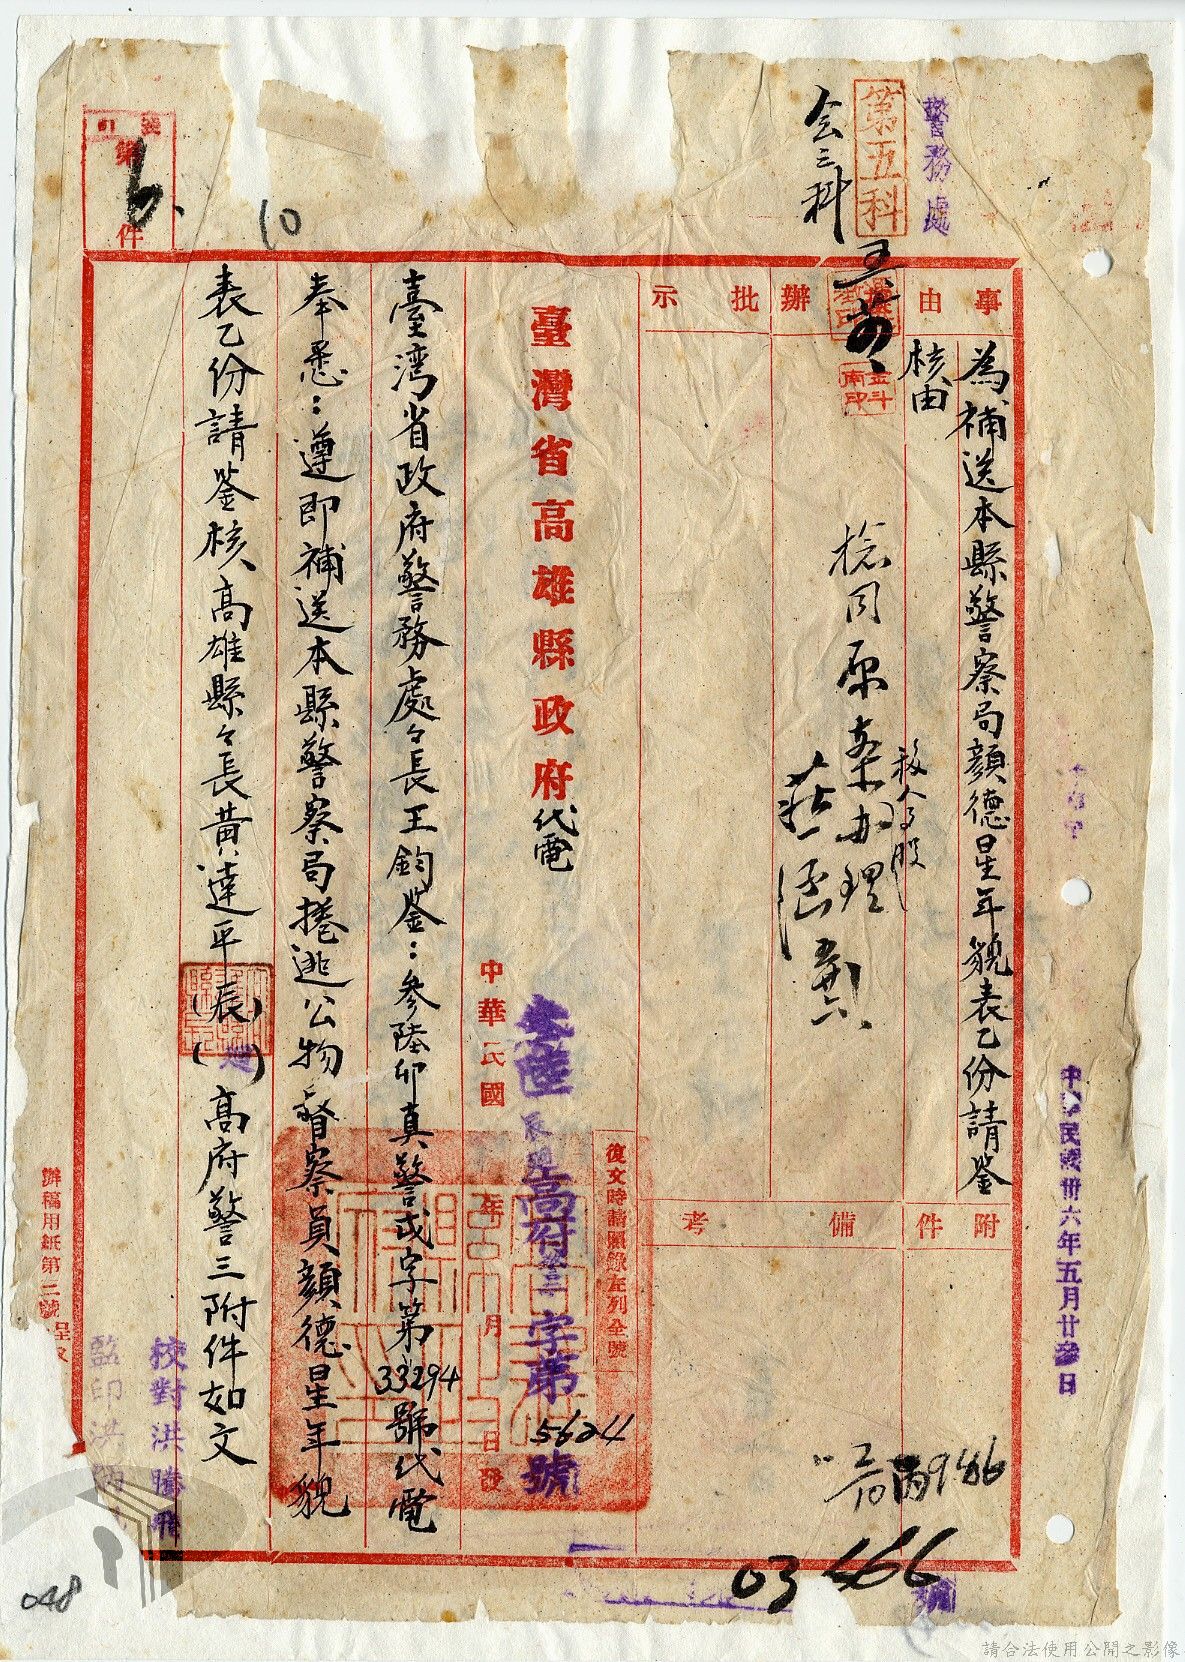 警務處
第五科
会三科
事由
為補送本縣警察局顏德星年貌表乙份請鑒
核由
擬辦
批示
捻同原案辦理
移人事股
附件
備考
臺灣省高雄縣政府代電
復文時請照錄左列全號
叁陸
高府警三字第5624號
中華民國 年 月 日發
臺湾省政府警務處々長王鈞鉴：參陸卯真警或字第33294號代電
奉悉：遵即補送本縣警察局捲逃公物督察員顏德星年貌
表乙份請鉴核高雄縣々長黃達平(辰)( )高府警三附件如文
校對洪騰飛
監印洪
辦稿用紙第二號
第6.件
10
中華民國卅六年五月廿叁日
丙986
03666
048
請合法使用公開之影像